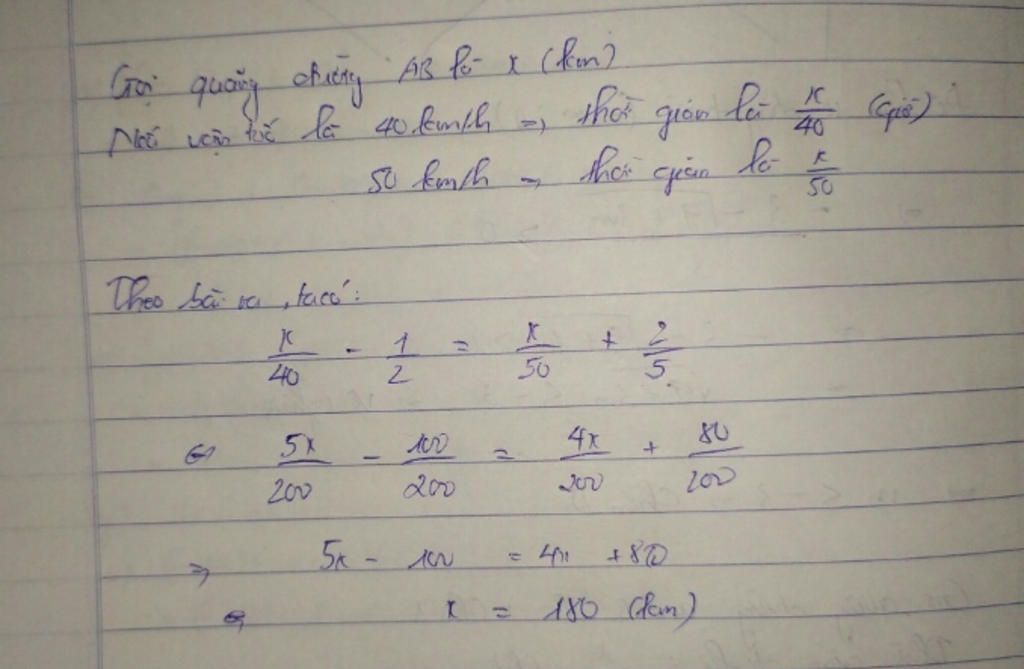 Gọi quãng đường AB là x (km)
Nếu vận tốc là 40 km/h => thời gian là x/40 (giờ)
50 km/h => thời gian là x/50
Theo bài ra, ta có:
x/40 - 1/2 = x/50 + 2/5
⇔ 5x/200 - 100/200 = 4x/200 + 80/200
=> 5x - 100 = 4x + 80
⇔ x = 180 (km)